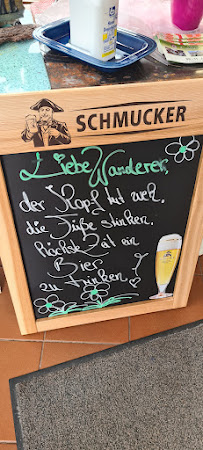 SCHMUCKER
Liebe Wanderer,
der Kopf tut weh.
die Füße stinken.
höchste Zeit ein
Bier
zu trinken!